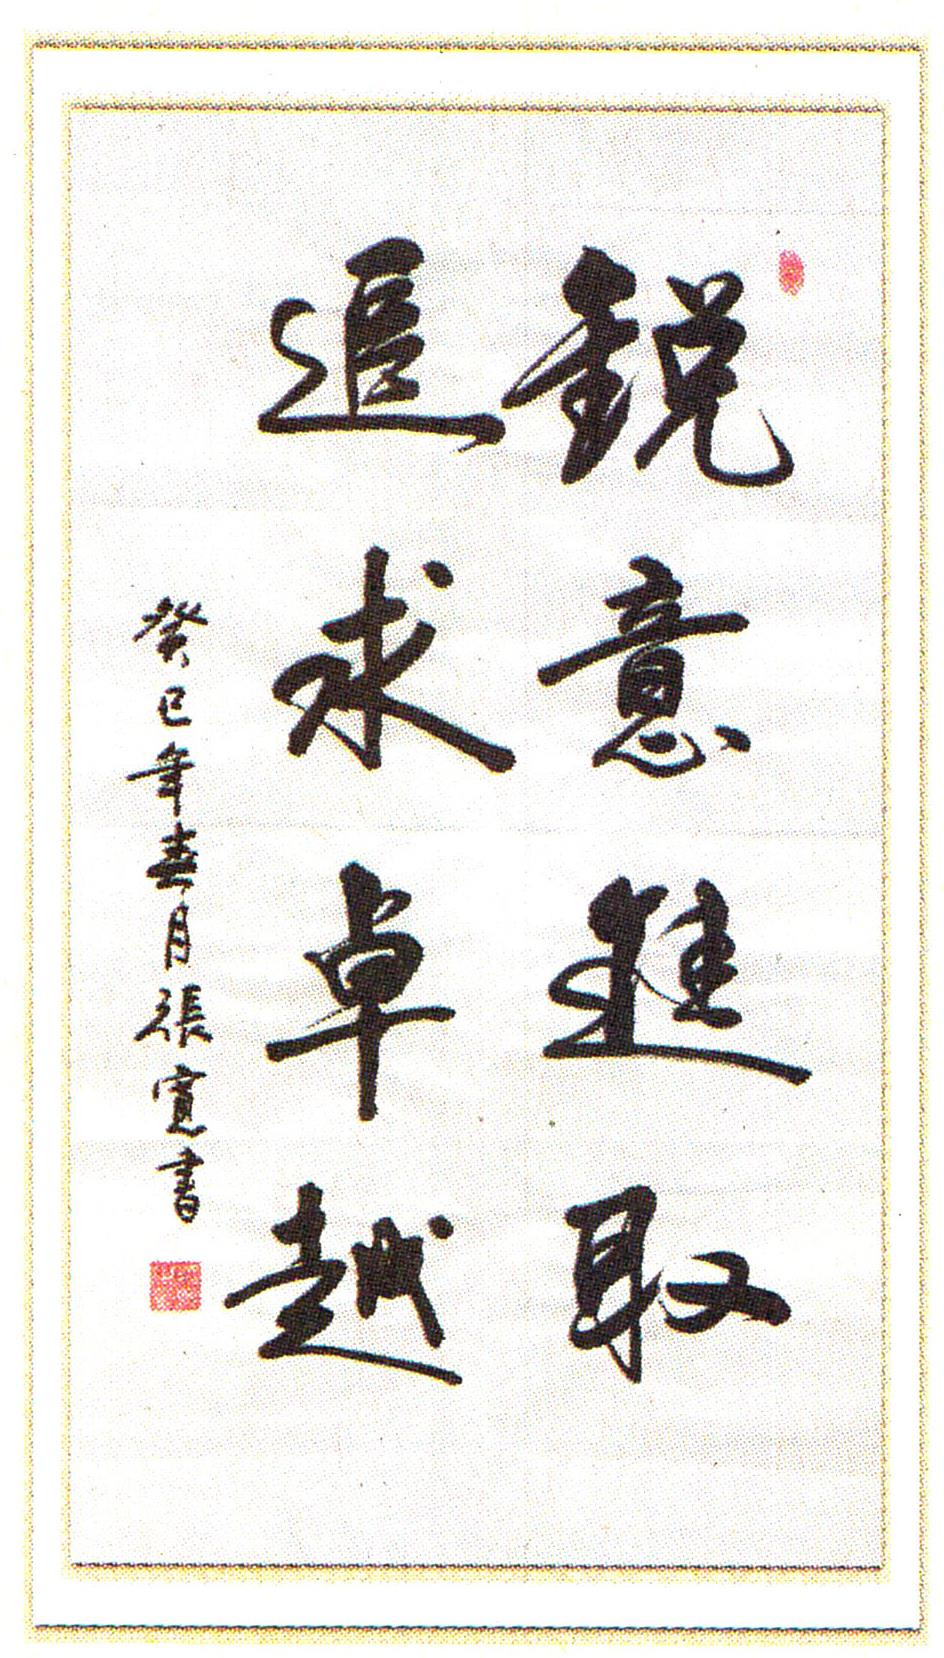 鋭意進取
追求卓越
癸巳年春月張寬書